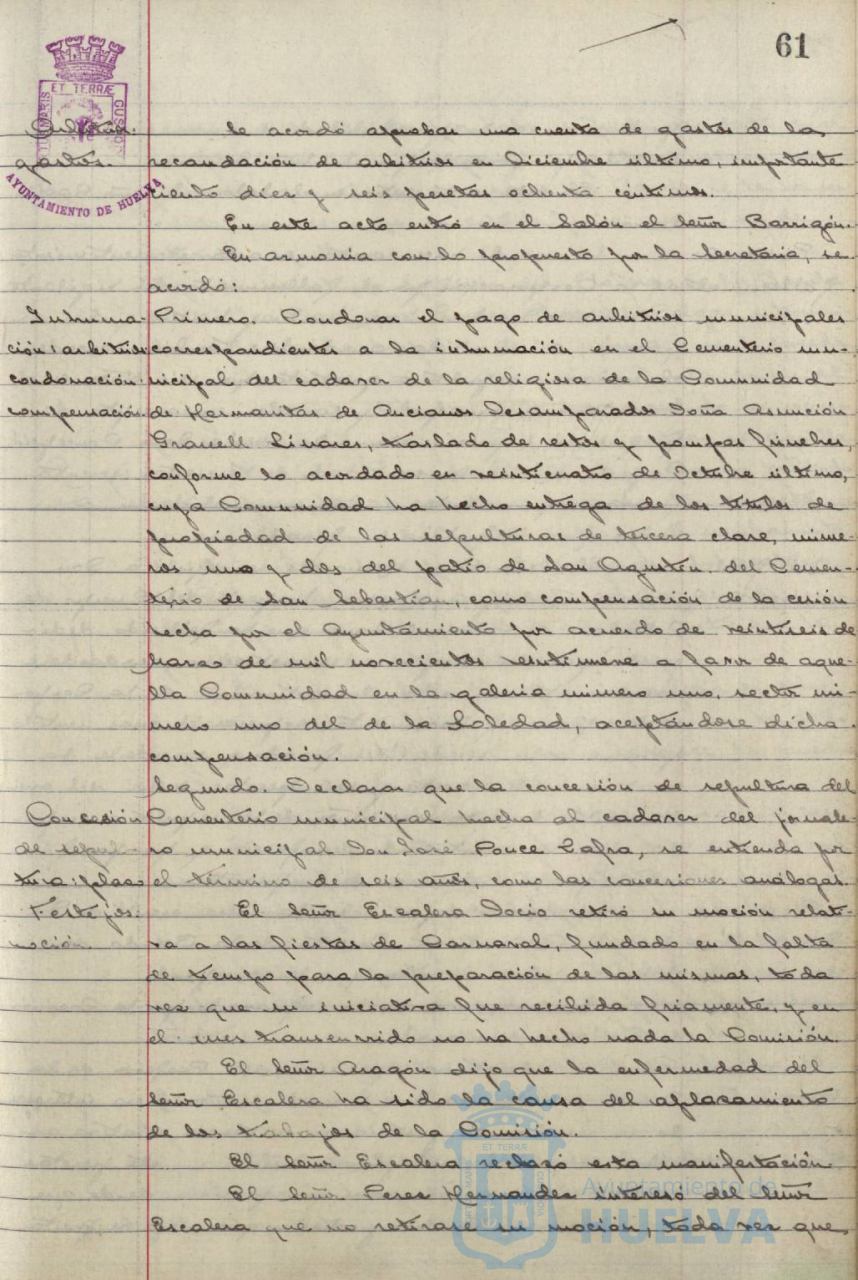 61
ET TERRÆ
AYUNTAMIENTO DE HUELVA
Arbitrios: Se acordó aprobar una cuenta de gastos de la
gastos. recaudación de arbitrios en Diciembre último, importante
ciento diez y seis pesetas ochenta céntimos.
En este acto entró en el Salón el Señor Barrigón.
En armonía con lo propuesto por la Secretaría, se
acordó:
Inhuma- Primero. Condonar el pago de arbitrios municipales
ción: arbitrios correspondientes a la inhumación en el Cementerio mu-
condonación: nicipal del cadaver de la religiosa de la Comunidad
compensación. de Hermanitas de Ancianos Desamparados Doña Asunción
Granell Linares, traslado de restos y pompas fúnebres,
conforme lo acordado en veinticuatro de Octubre último,
cuya Comunidad ha hecho entrega de los títulos de
propiedad de las sepulturas de tercera clase, núme-
ros uno y dos del patio de San Agustín del Cemen-
terio de San Sebastián, como compensación de la cesión
hecha por el Ayuntamiento por acuerdo de veintiseis de
Marzo de mil novecientos veintinueve a favor de aque-
lla Comunidad en la galería número uno, sector nú-
mero uno del de la Soledad, aceptándose dicha
compensación.
Segundo. Declarar que la concesión de sepultura del
Concesión Cementerio municipal hecha al cadaver del jornale-
de sepul- ro municipal Don José Ponce Zafra, se entienda por
tura: plazo el término de seis años, como las concesiones análogas.
Festejos: El Señor Escalera Socio retiró su moción relati-
moción va a las fiestas de Carnaval, fundado en la falta
de tiempo para la preparación de las mismas, toda
vez que su iniciativa fue recibida friamente, y en
el mes transcurrido no ha hecho nada la Comisión.
El Señor Aragón dijo que la enfermedad del
Señor Escalera ha sido la causa del aplazamiento
de los trabajos de la Comisión.
El Señor Escalera rechazó esta manifestación
El Señor Perez Hernandez interesó del Señor
Escalera que no retirase su moción, toda vez que
Ayuntamiento de
HUELVA